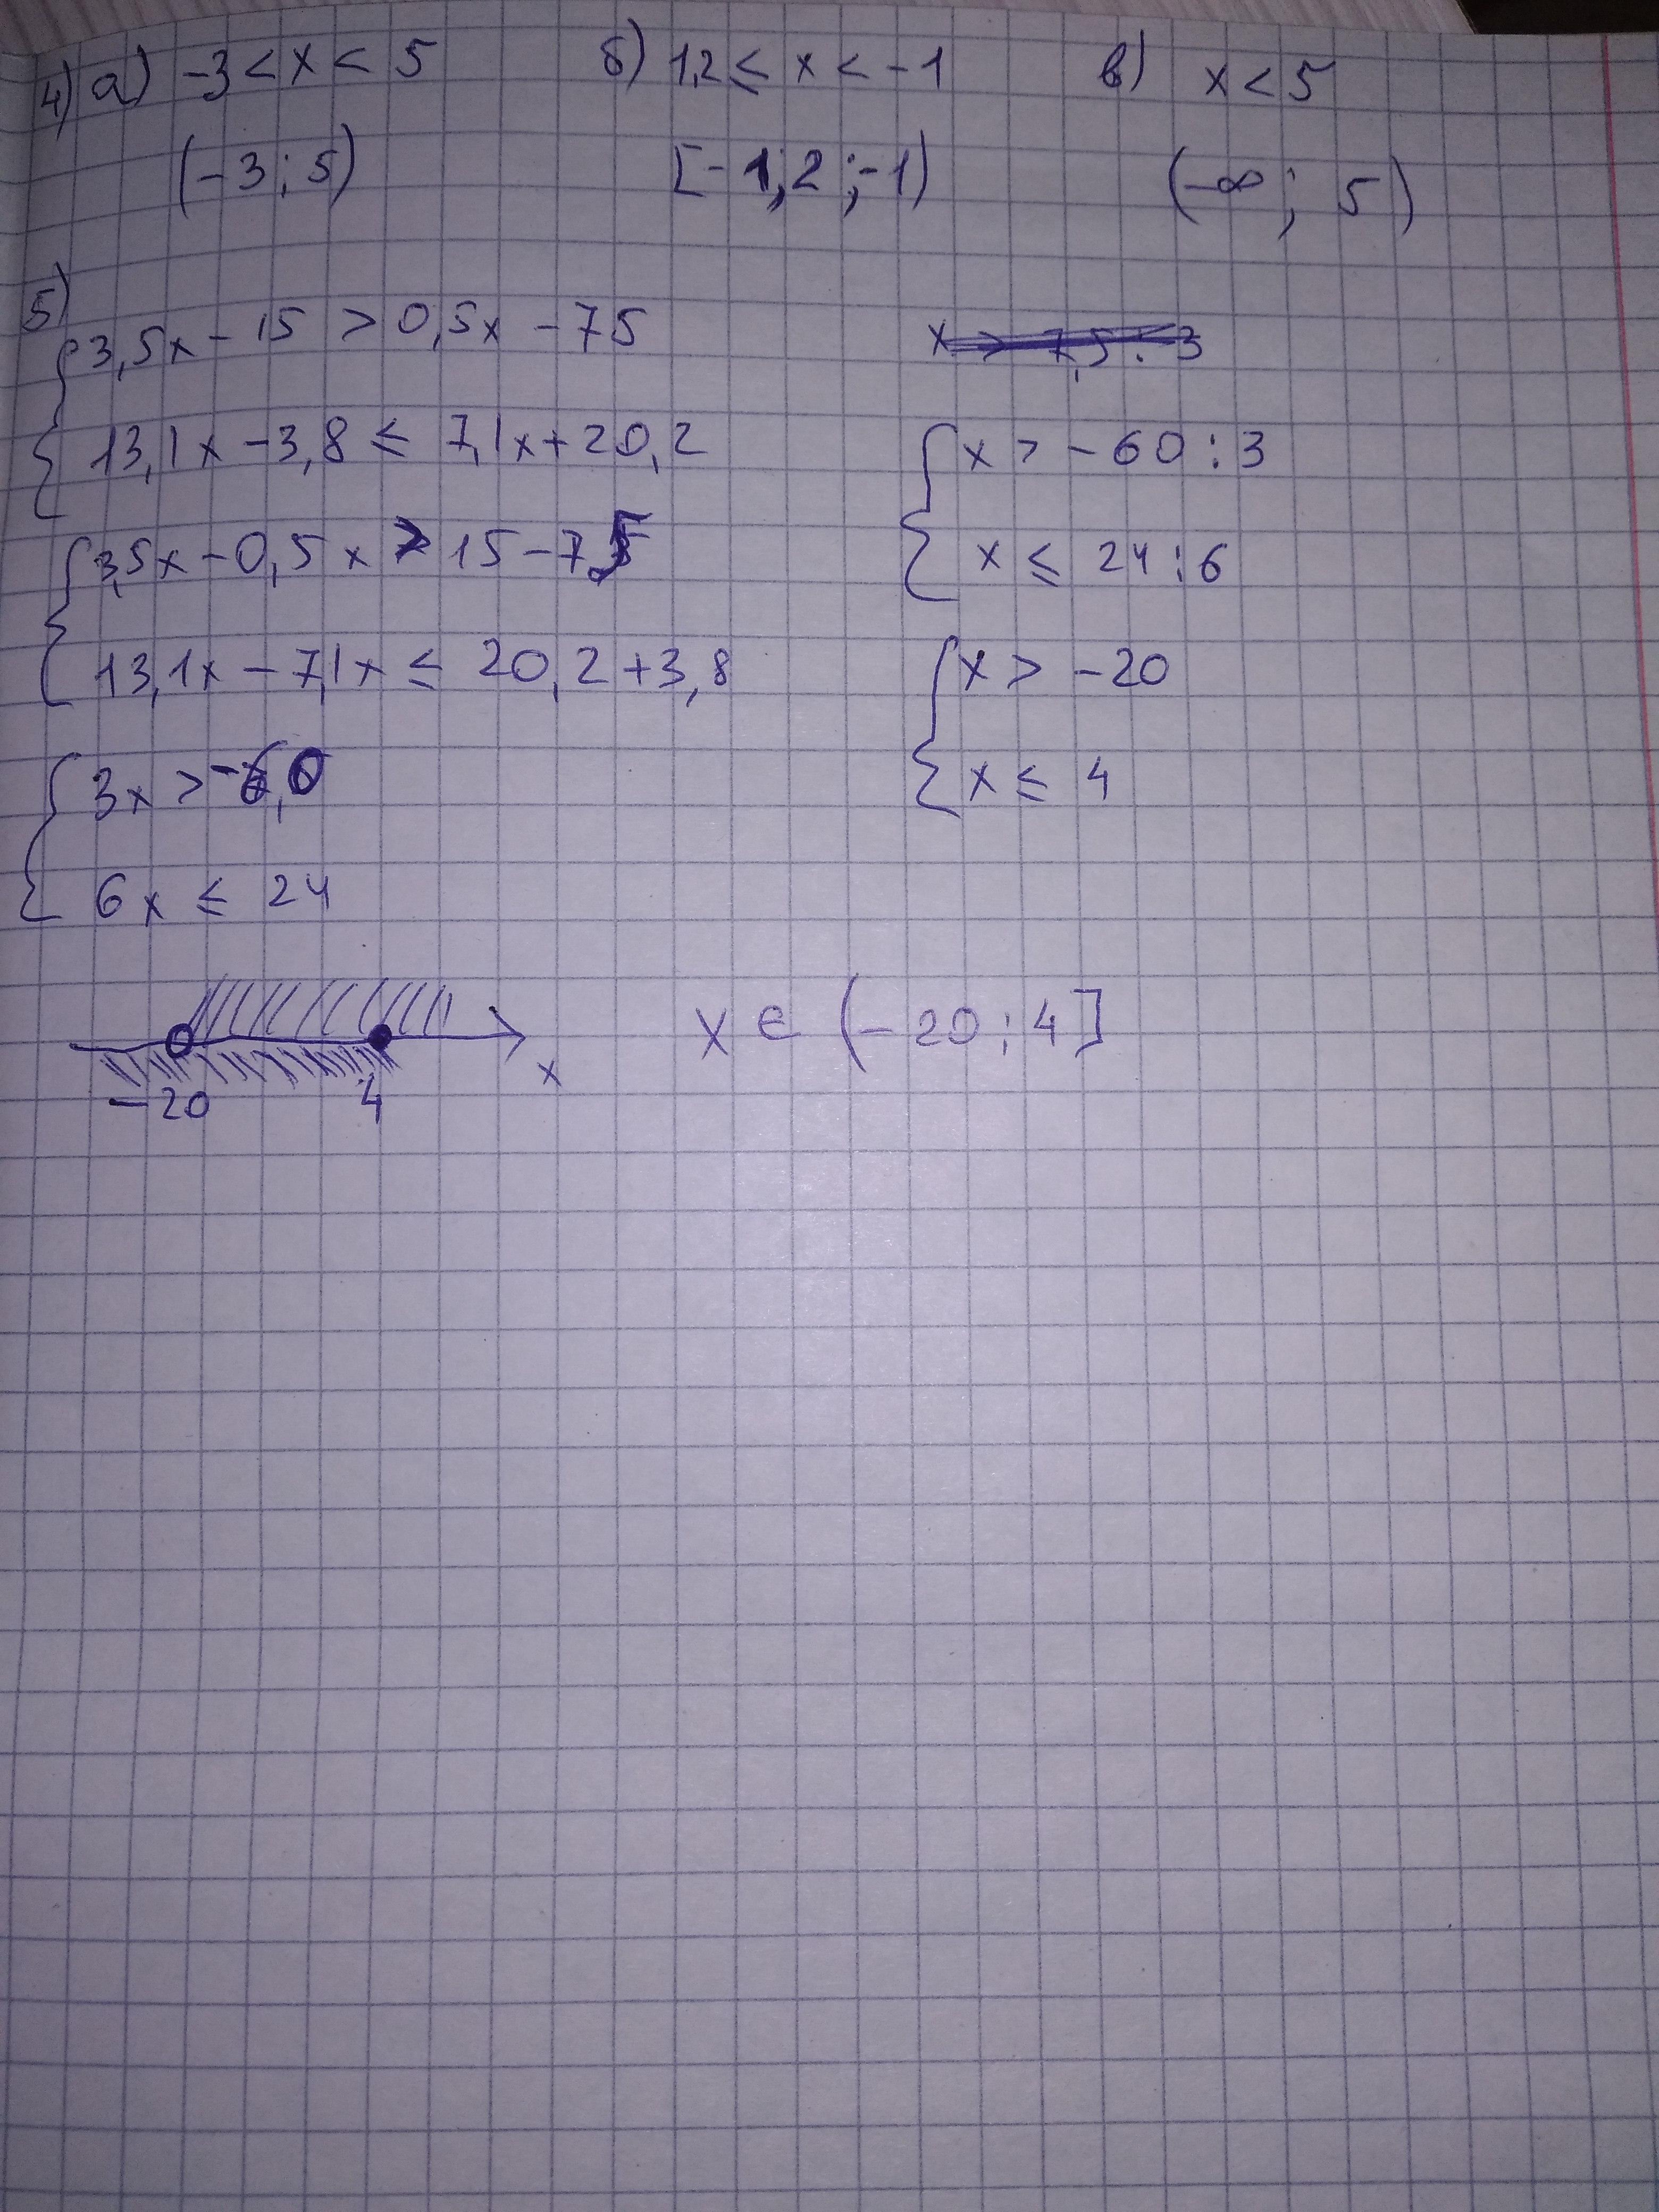 4) а) -3 < x < 5 б) 1,2 ≤ x < -1 в) x < 5
(-3; 5) [-1,2 ; -1) (-∞; 5)
5)
3,5x - 15 > 0,5x - 75
13,1x - 3,8 ≤ 7,1x + 20,2
3,5x - 0,5x > 15 - 75
13,1x - 7,1x ≤ 20,2 + 3,8
3x > -60
6x ≤ 24
x > 7,5 : 3
x > -60 : 3
x ≤ 24 : 6
x > -20
x ≤ 4
-20 4 x
x ∈ (-20; 4]